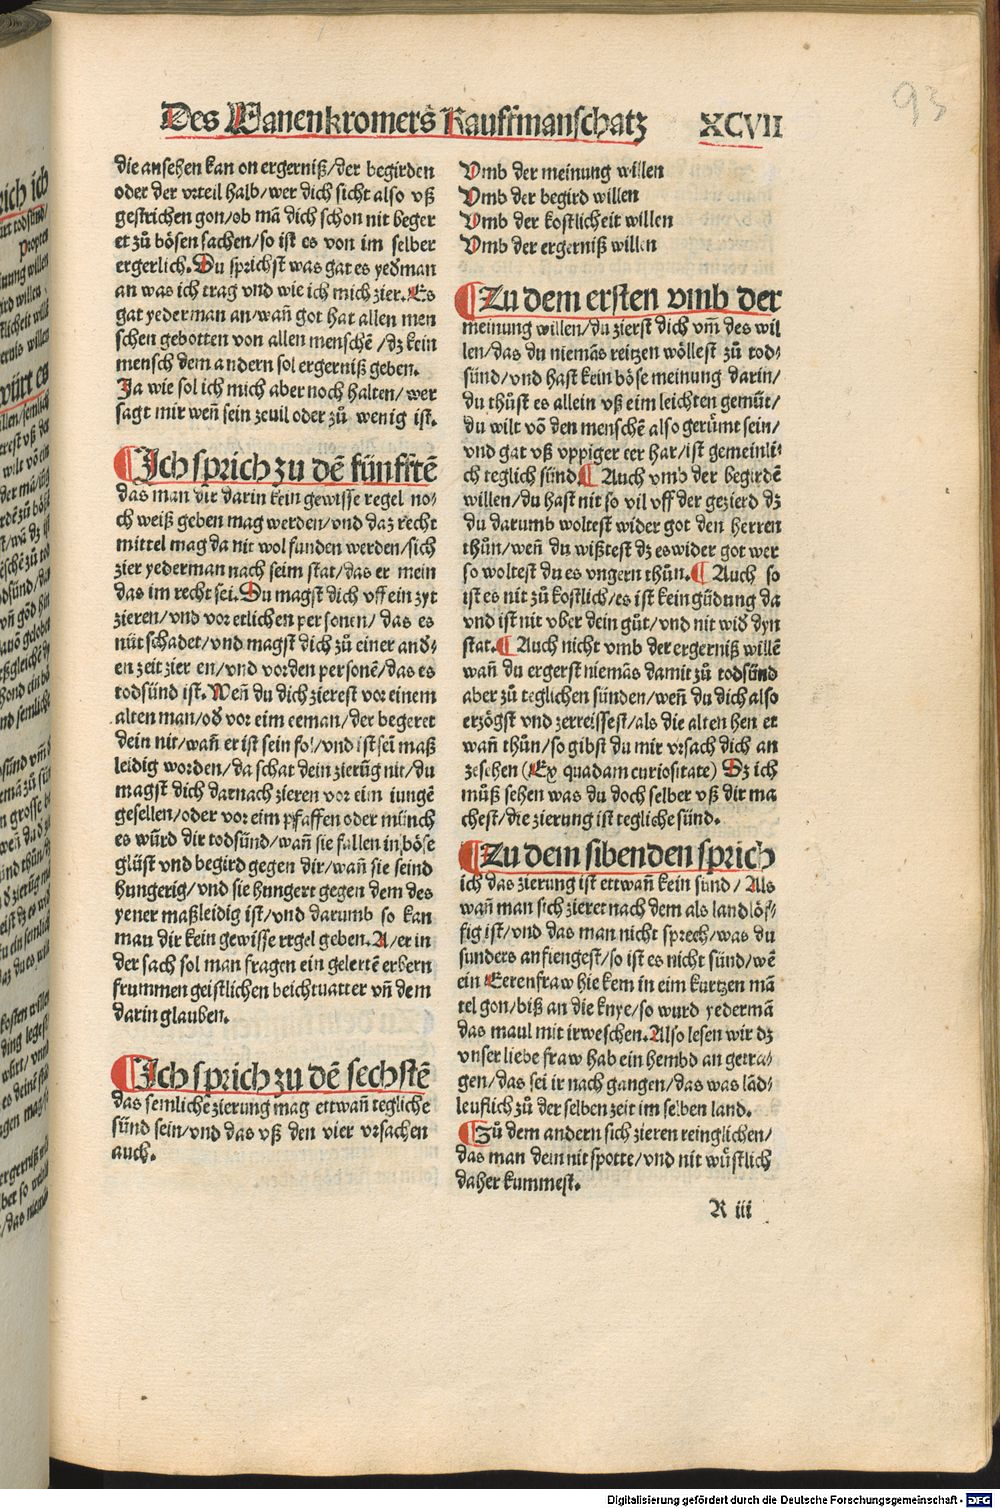 Des Wanenkromers Kauffmanschatz XCVII
93
die ansehen kan on ergerniß/der begirden
oder der vrteil halb/wer dich sicht also vß
gestrichen gon/ob mā dich schon nit beger
et zů bösen sachen/so ist es von im selber
ergerlich. Du sprichst was gat es yed̄man
an was ich trag vnd wie ich mich zier. Es
gat yeder man an/wañ got hat allen men
schen gebotten von allen menschē/dz kein
mensch dem andern sol ergerniß geben.
Ja wie sol ich mich aber noch halten/wer
sagt mir weñ sein zeuil oder zů wenig ist.
¶Ich sprich zu dē fünfftē
das man dir darin kein gewisse regel no⸗
ch weiß geben mag werden/vnd daz recht
mittel mag da nit wol funden werden/sich
zier yederman nach seim stat/das er mein
das im recht sei. Du magst dich vff ein zyt
zieren/vnd vor etlichen personen/das es
nüt schadet/vnd magst dich zů einer and̄⸗
en zeit zier en/vnd vor den personē/das es
todsünd ist. Weñ du dich zierest vor einem
alten man/od̄ vor eim eeman/der begeret
dein nit/wañ er ist sein fol/vnd ist sein maß
leidig worden/da schat dein zierūg nit/du
magst dich darnach zieren vor eim iungē
gesellen/oder vor eim pfaffen oder münch
es würd dir todsünd/wañ sie fallen in böse
glüst vnd begird gegen dir/wañ sie seind
hungerig/vnd sie hungert gegen dem des
yener maßleidig ist/vnd darumb so kan
man dir kein gewisse regel geben. A/er in
der sach sol man fragen ein gelertē erbern
frummen geistlichen beichtuatter vñ dem
darin glauben.
¶Ich sprich zu dē sechstē
das semliche zierung mag ettwañ tegliche
sünd sein/vnd das vß den vier vrsachen
auch.
Vmb der meinung willen
Vmb der begird willen
Vmb der kostlicheit willen
Vmb der ergerniß willen
¶Zu dem ersten vmb der
meinung willen/du zierst dich vm̄ des wil
len/das du niemās reitzen wöllest zů tod⸗
sünd/vnd hast kein böse meinung darin/
du thůst es allein vß eim leichten gemüt/
du wilt vō den menschē also gerümt sein/
vnd gat vß vppiger eer har/ist gemeinli⸗
ch teglich sünd ¶ Auch vmb der begirdē
willen/du hast nit so vil vff der gezierd dz
du darumb woltest wider got den herren
thůn/weñ du wißtest dz es wider got wer
so woltest du es vngern thůn. ¶ Auch so
ist es nit zů kostlich/es ist kein güdung da
vnd ist nit vber dein gůt/vnd nit wid̄ dyn
stat. ¶ Auch nicht vmb der ergerniß willē
wañ du ergerst niemās damit zů todsünd
aber zů teglichen sünden/weñ du dich also
erzögst vnd zerreissest/als die alten hen et
wañ thůn/so gibst du mir vrsach dich an
zesehen (Ex quadam curiositate) Dz ich
můß sehen was du doch selber vß dir ma
chest/die zierung ist tegliche sünd.
¶Zu dem sibenden sprich
ich das zierung ist ettwañ kein sünd/Als
wañ man sich zieret nach dem als landlöf⸗
fig ist/vnd das man nicht sprech/was du
sunders anfiengest/so ist es nicht sünd/wē
ein Eerenfraw hie kem in eim kurtzen mā
tel gon/biß an die knye/so wurd yedermā
das maul mit ir weschen. Also lesen wir dz
vnser liebe fraw hab ein hembd an getra⸗
gen/das sei ir nach gangen/das was lād⸗
leuflich zů der selben zeit im selben land.
¶Zů dem andern sich zieren reinglichen/
das man dein nit spotte/vnd nit wůstlich
daher kummest.
R iii
Digitalisierung gefördert durch die Deutsche Forschungsgemeinschaft - DFG